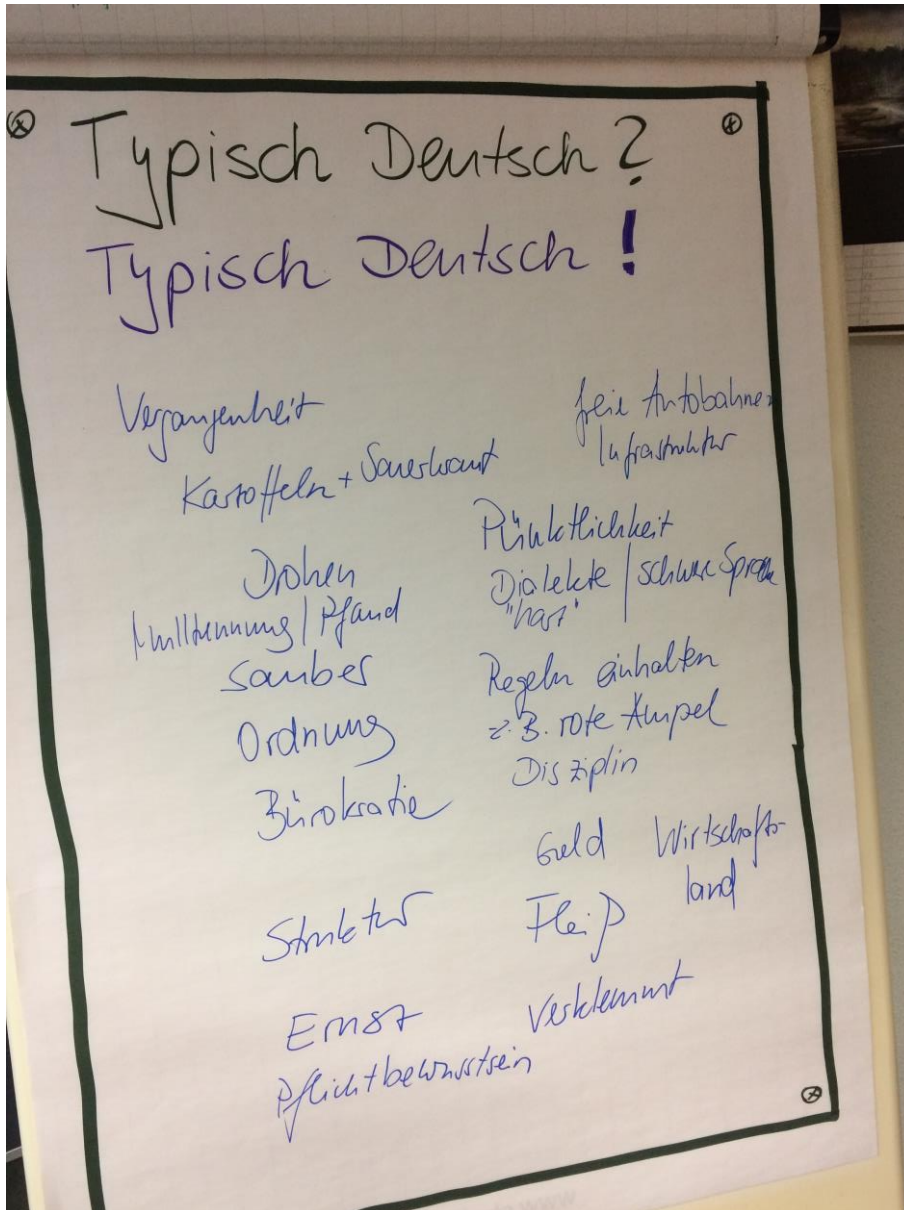 Typisch Deutsch?
Typisch Deutsch!
Vergangenheit
Kartoffeln + Sauerkraut
Mülltrennung / Pfand
sauber
Ordnung
Bürokratie
Struktur
Ernst
Pflichtbewusstsein
freie Autobahnen
Infrastruktur
Pünktlichkeit
Dialekte / schwere Sprache
"hart"
Regeln einhalten
z.B. rote Ampel
Disziplin
Geld
Fleiß
Wirtschafts-
land
Verklemmt